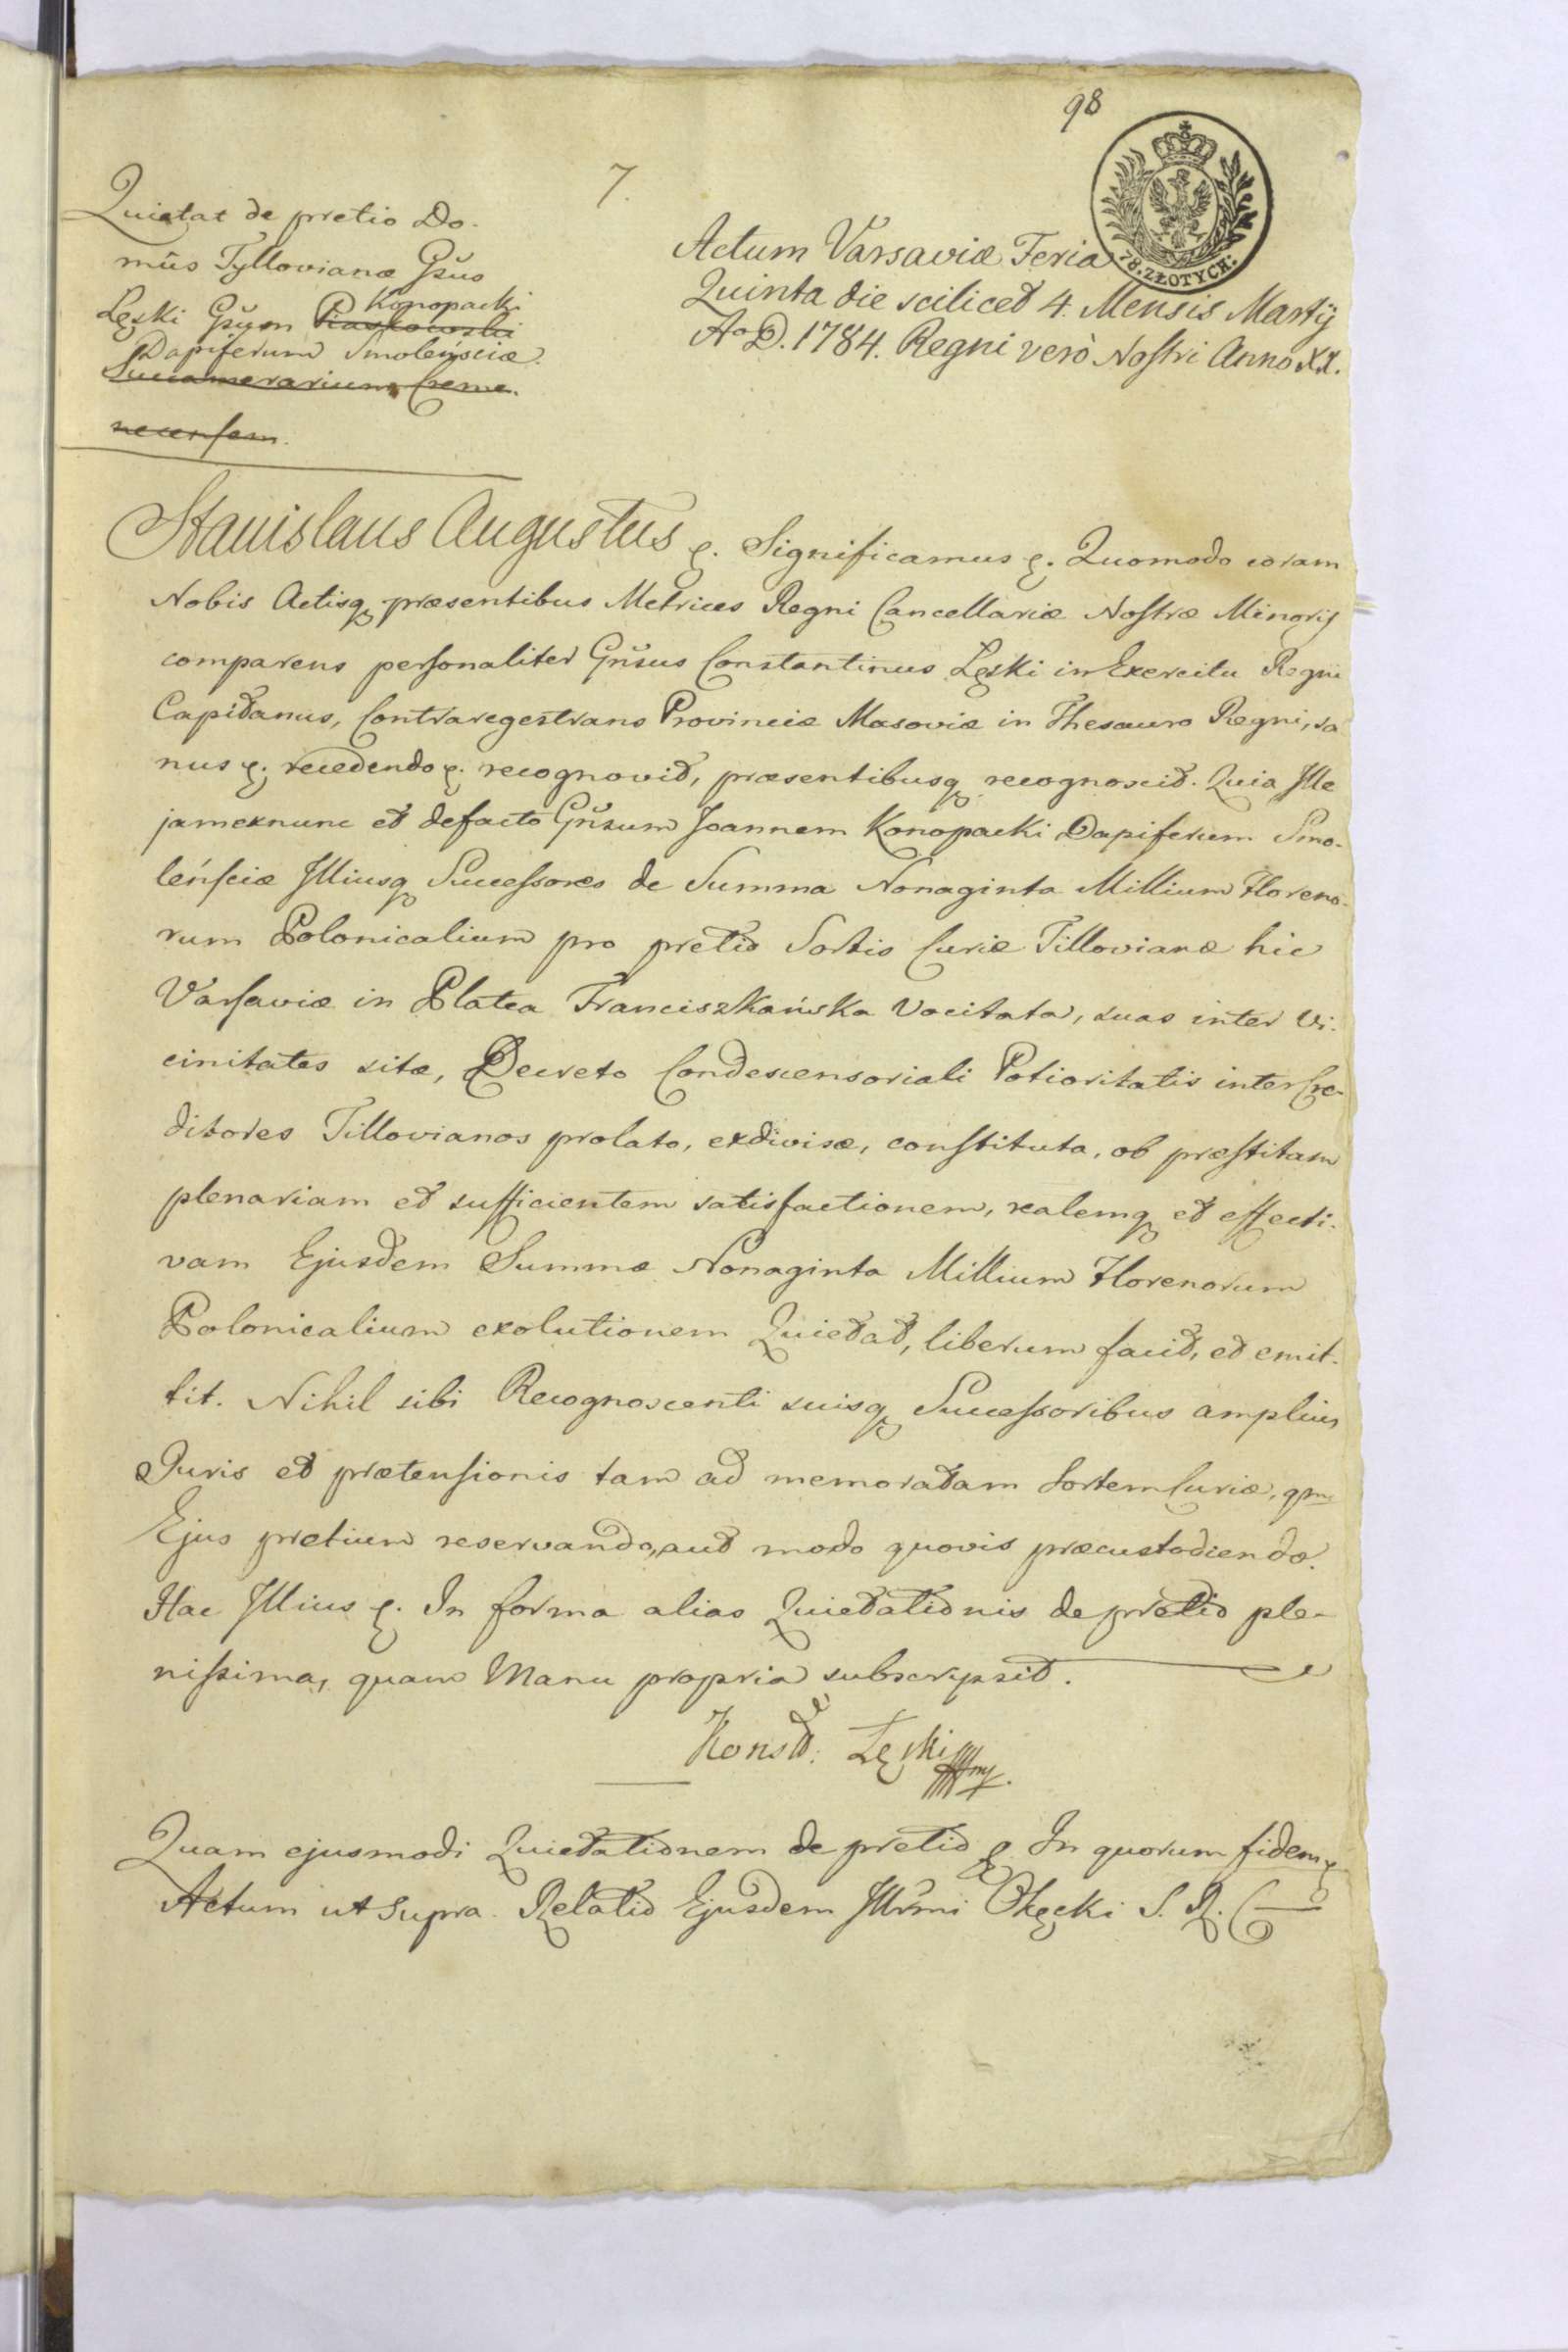 98
7.
Quietat de pretio Do-
mûs Tylloviana Gsus
Konopacki
Łęski Gsum Piaskowski
Dapiferum Smolenściæ.
Succamerarium Creme-
necensem.
8. ZŁOTYCH.
Actum Varsaviæ Feria
Quinta die scilicet 4. Mensis Martij
Ao D. 1784. Regni verò Nostri Anno XX.
Stanislaus Augustus &. Significamus &. Quomodo coram
Nobis Actisq præsentibus Metrices Regni Cancellariæ Nostræ Minoris
comparens personaliter Gnsus Constantinus Łęski in Exercitu Regni
Capitanus, Contraregestrans Provinciæ Masoviæ in Thesauro Regni, sa
nus &. recedendo &. recognovit, præsentibusq recognoscit. Quia Ille
jamexnunc et defacto Gnsum Joannem Konopacki Dapiferum Smo-
leńsciæ Illiusq Successores de Summa Nonaginta Millium Floreno-
rum Polonicalium pro pretio Sortis Curiæ Tillovianæ hic
Varsaviæ in Platea Franciszkańska vocitata, suas inter Vi-
cinitates sitæ, Decreto Condescensoriali Potioritatis inter Cre-
ditores Tillovianos prolato, exdivisæ, constituta, ob præstitam
plenariam et sufficientem satisfactionem, realemq et effecti-
vam Ejusdem Summæ Nonaginta Millium Florenorum
Polonicalium exolutionem Quietat, liberum facit, et emit-
tit. Nihil sibi Recognoscenti suisq Successoribus amplius
Juris et prætensionis tam ad memoratam Sortem Curiæ, qm
Ejus pretium reservando, aut modo quovis præcustodiendo.
Hac Illius &. In forma alias Quietationis de pretio ple-
nissima, quam Manu propria subscripsit.
Konst: Łęski mp.
Quam ejusmodi Quietationem de pretio &. In quorum fidem &
Actum ut supra. Relatio Ejusdem Illrmi Okęcki S. R.